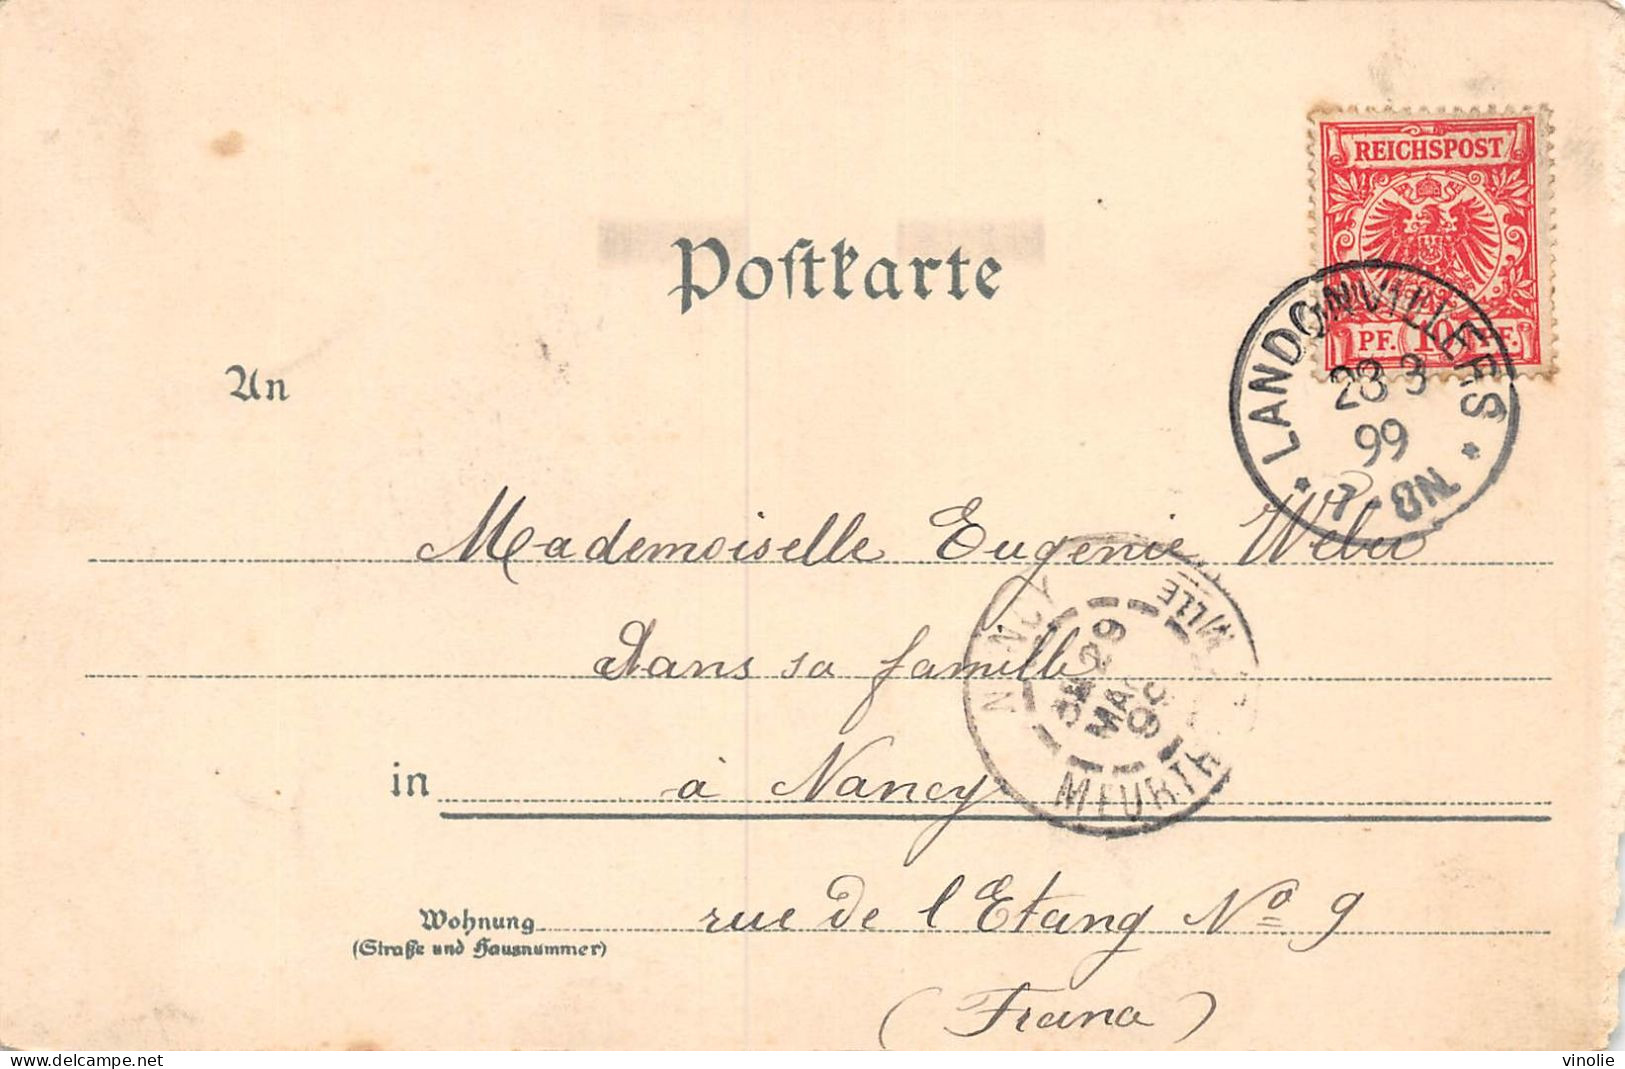 REICHSPOST
PF. 10 PF.
Postkarte
LANDONVILLERS
28 3
99
7-8N
An
Mademoiselle Eugenie Weber
Dans sa famille
NANCY
MEURTHE
29
99
in à Nancy
Wohnung rue de l'Etang No 9
(Straße und Hausnummer)
(France)
vinolie